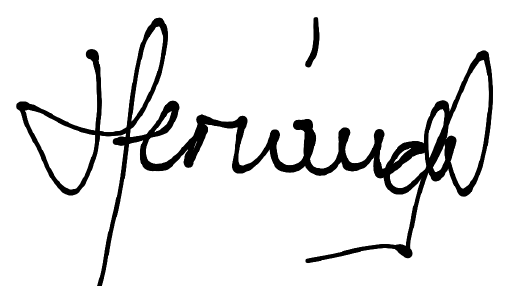 Hernández